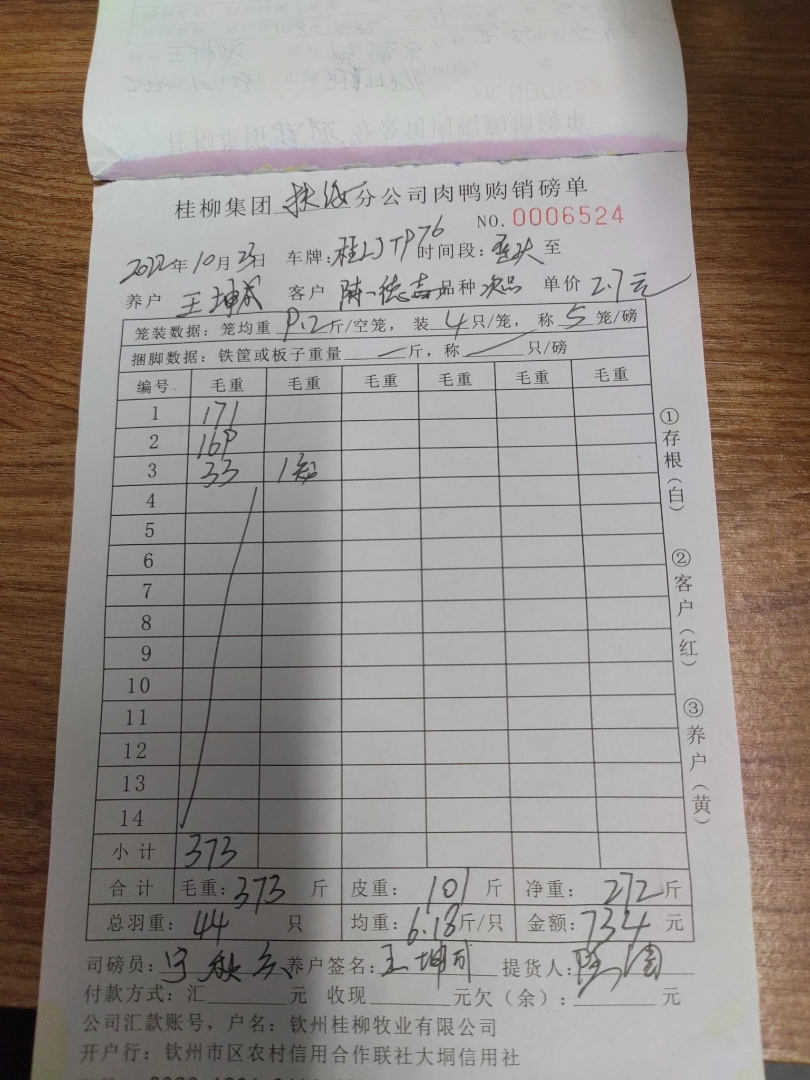 桂柳集团扶绥分公司肉鸭购销磅单
NO. 0006524
2022年10月23日 车牌:桂LJTP76 时间段: 至
养户 王坤成 客户 陈德 品种 次品 单价 2.7元
笼装数据: 笼均重 9.2斤/空笼, 装 4只/笼, 称 5笼/磅
捆脚数据: 铁筐或板子重量 斤, 称 只/磅
编号 毛重 毛重 毛重 毛重 毛重 毛重
1 171
2 169
3 33 1
4
5
6
7
8
9
10
11
12
13
14
小计 373
合计 毛重: 373斤 皮重: 101斤 净重: 272斤
总羽重: 44只 均重: 6.18斤/只 金额: 734元
司磅员: 养户签名: 王坤成 提货人:
付款方式: 汇 元 收现 元 欠(余): 元
公司汇款账号, 户名: 钦州桂柳牧业有限公司
开户行: 钦州市区农村信用合作联社大垌信用社
①存根(白)
②客户(红)
③养户(黄)